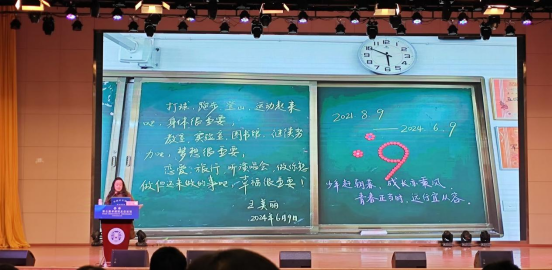 打球、跑步、登山，运动起来
吧，身体很重要，
教室、实验室、图书馆，继续努
力吧，梦想很重要；
恋爱、旅行、听演唱会，做你想
做但还未做的事吧，幸福很重要！
王美丽
2024年6月9日
2021.8.9
——2024.6.9
9
少年赶朝暮，成长亦乘风
青春正当时，远行宜从容。